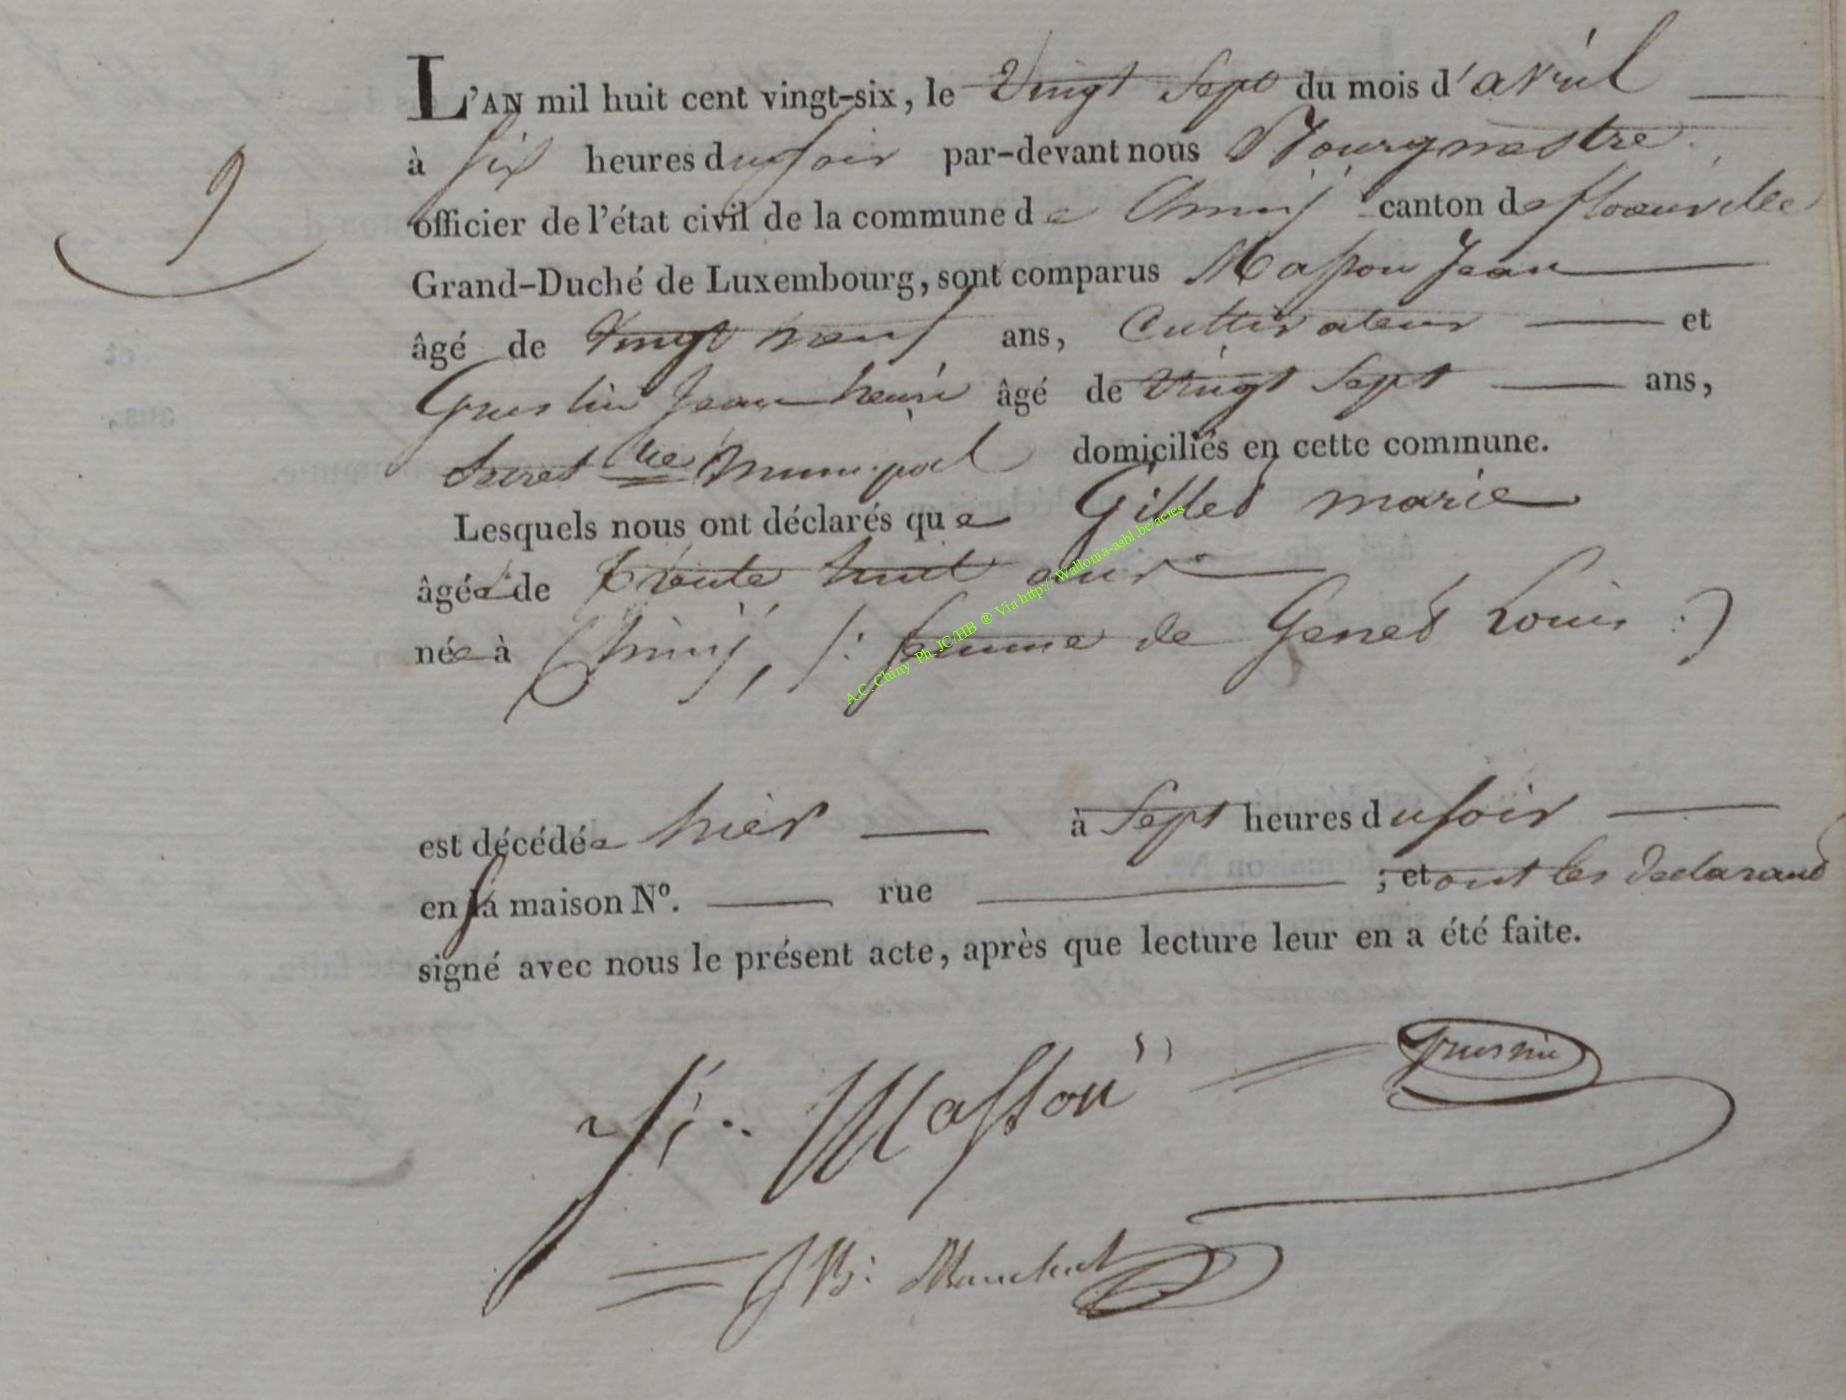 L'AN mil huit cent vingt-six, le Vingt Sept du mois d'avril
9
à six heures du soir par-devant nous Bourgmestre
officier de l'état civil de la commune de Chiny canton de florenville
Grand-Duché de Luxembourg, sont comparus Masson Jean
âgé de vingt neuf ans, Cultivateur et
Jean henri âgé de vingt Sept ans,
Secret re Municipal domiciliés en cette commune.
Lesquels nous ont déclarés que Gilles marie
âgée de trente huit ans
née à Chiny, /: femme de Genes Louis :)
est décédée hier à Sept heures du soir
en sa maison N°. rue ; et ont les declarans
signé avec nous le présent acte, après que lecture leur en a été faite.
Masson
JB:
A.C. Chiny Ph. JC/HB ® Via http://Wallonia-asbl.be/actes